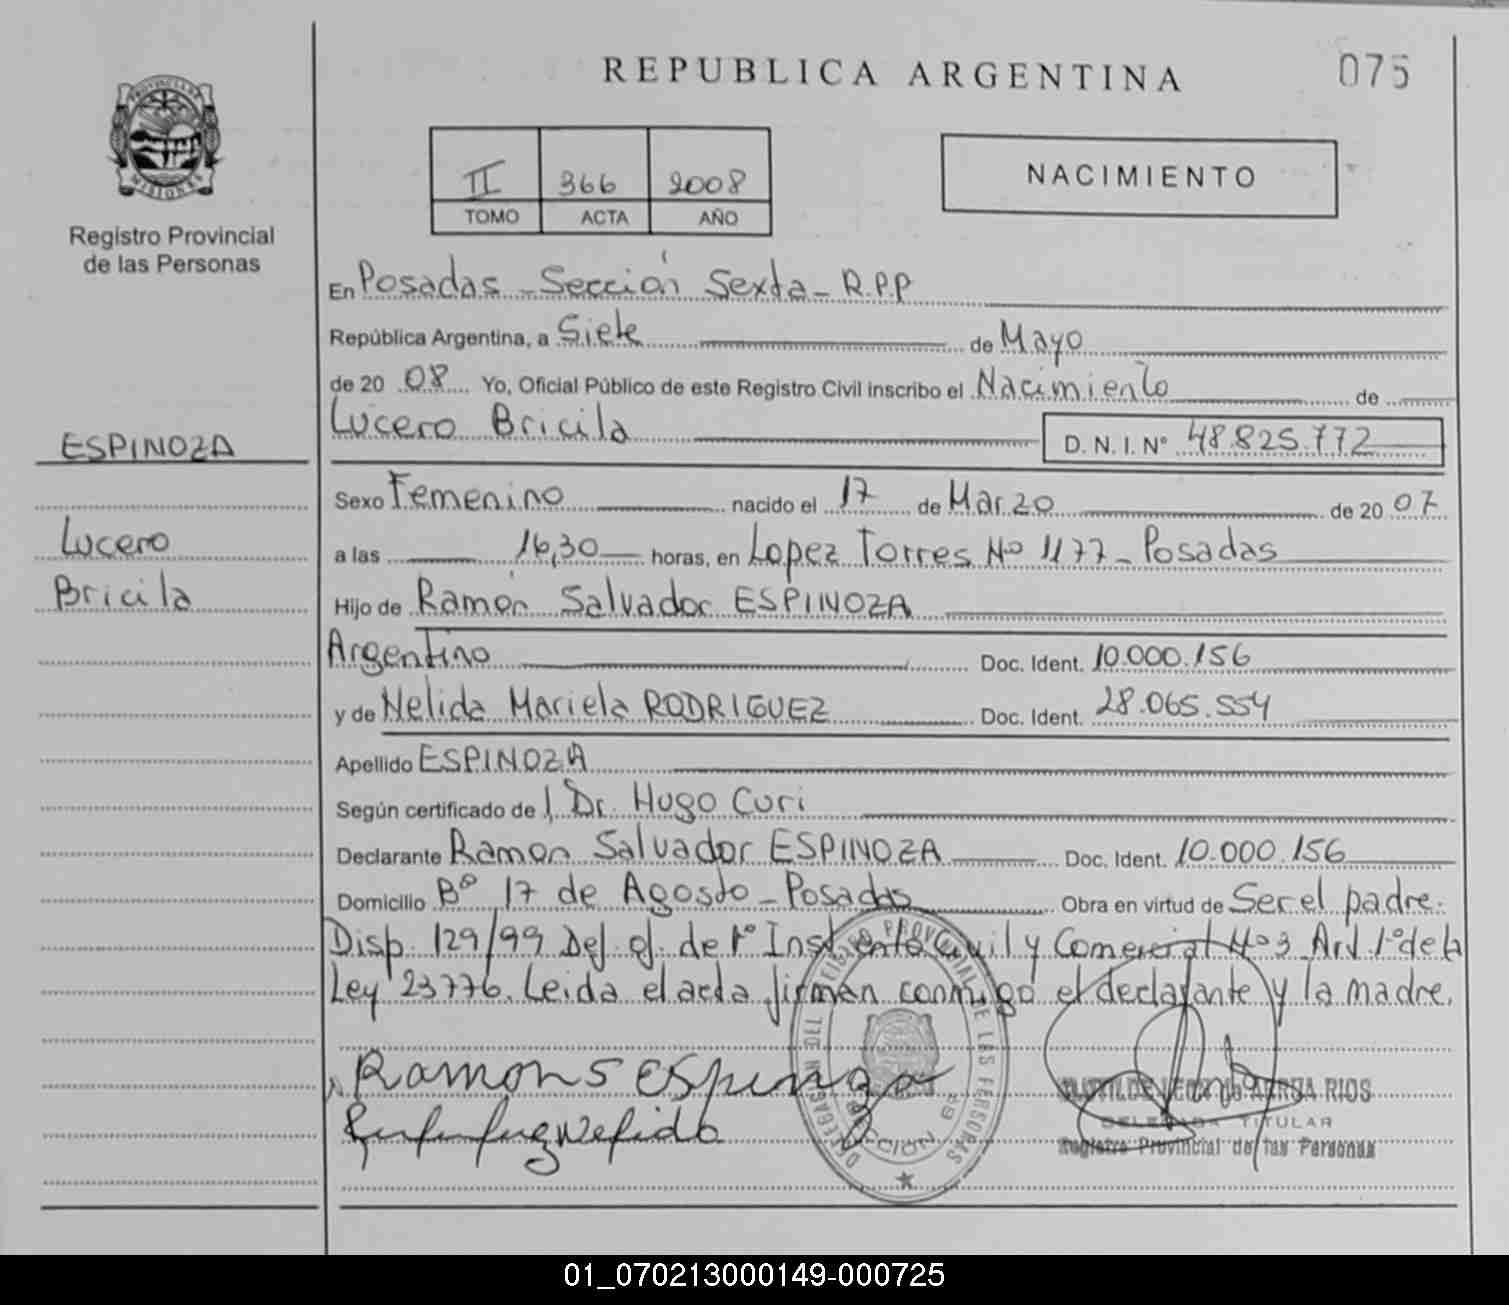 REPUBLICA ARGENTINA
075
PROVINCIA DE
MISIONES
Registro Provincial
de las Personas
II 366 2008
TOMO ACTA AÑO
NACIMIENTO
En Posadas - Sección Sexta - R.P.P
República Argentina, a Siete de Mayo
de 20 08 Yo, Oficial Público de este Registro Civil inscribo el Nacimiento de
Lucero Bricila
D. N. I. Nº 48.825.772
ESPINOZA
Lucero
Bricila
Sexo Femenino nacido el 17 de Marzo de 20 07
a las 16,30 horas, en Lopez Torres Nº 1177 - Posadas
Hijo de Ramón Salvador ESPINOZA
Argentino Doc. Ident. 10.000.156
y de Nelida Mariela RODRIGUEZ Doc. Ident. 28.065.554
Apellido ESPINOZA
Según certificado de Dr. Hugo Curi
Declarante Ramon Salvador ESPINOZA Doc. Ident. 10.000.156
Domicilio Bº 17 de Agosto - Posadas Obra en virtud de Ser el padre.
Disp. 129/99 Def. of. de 1º Inst. Civil y Comercial Nº 3 Art. 1º de la
Ley 23776. Leida el acta firman conmigo el declarante y la madre.
Ramon S Espinoza
DELEGADA TITULAR
Registro Provincial de las Personas
01_070213000149-000725